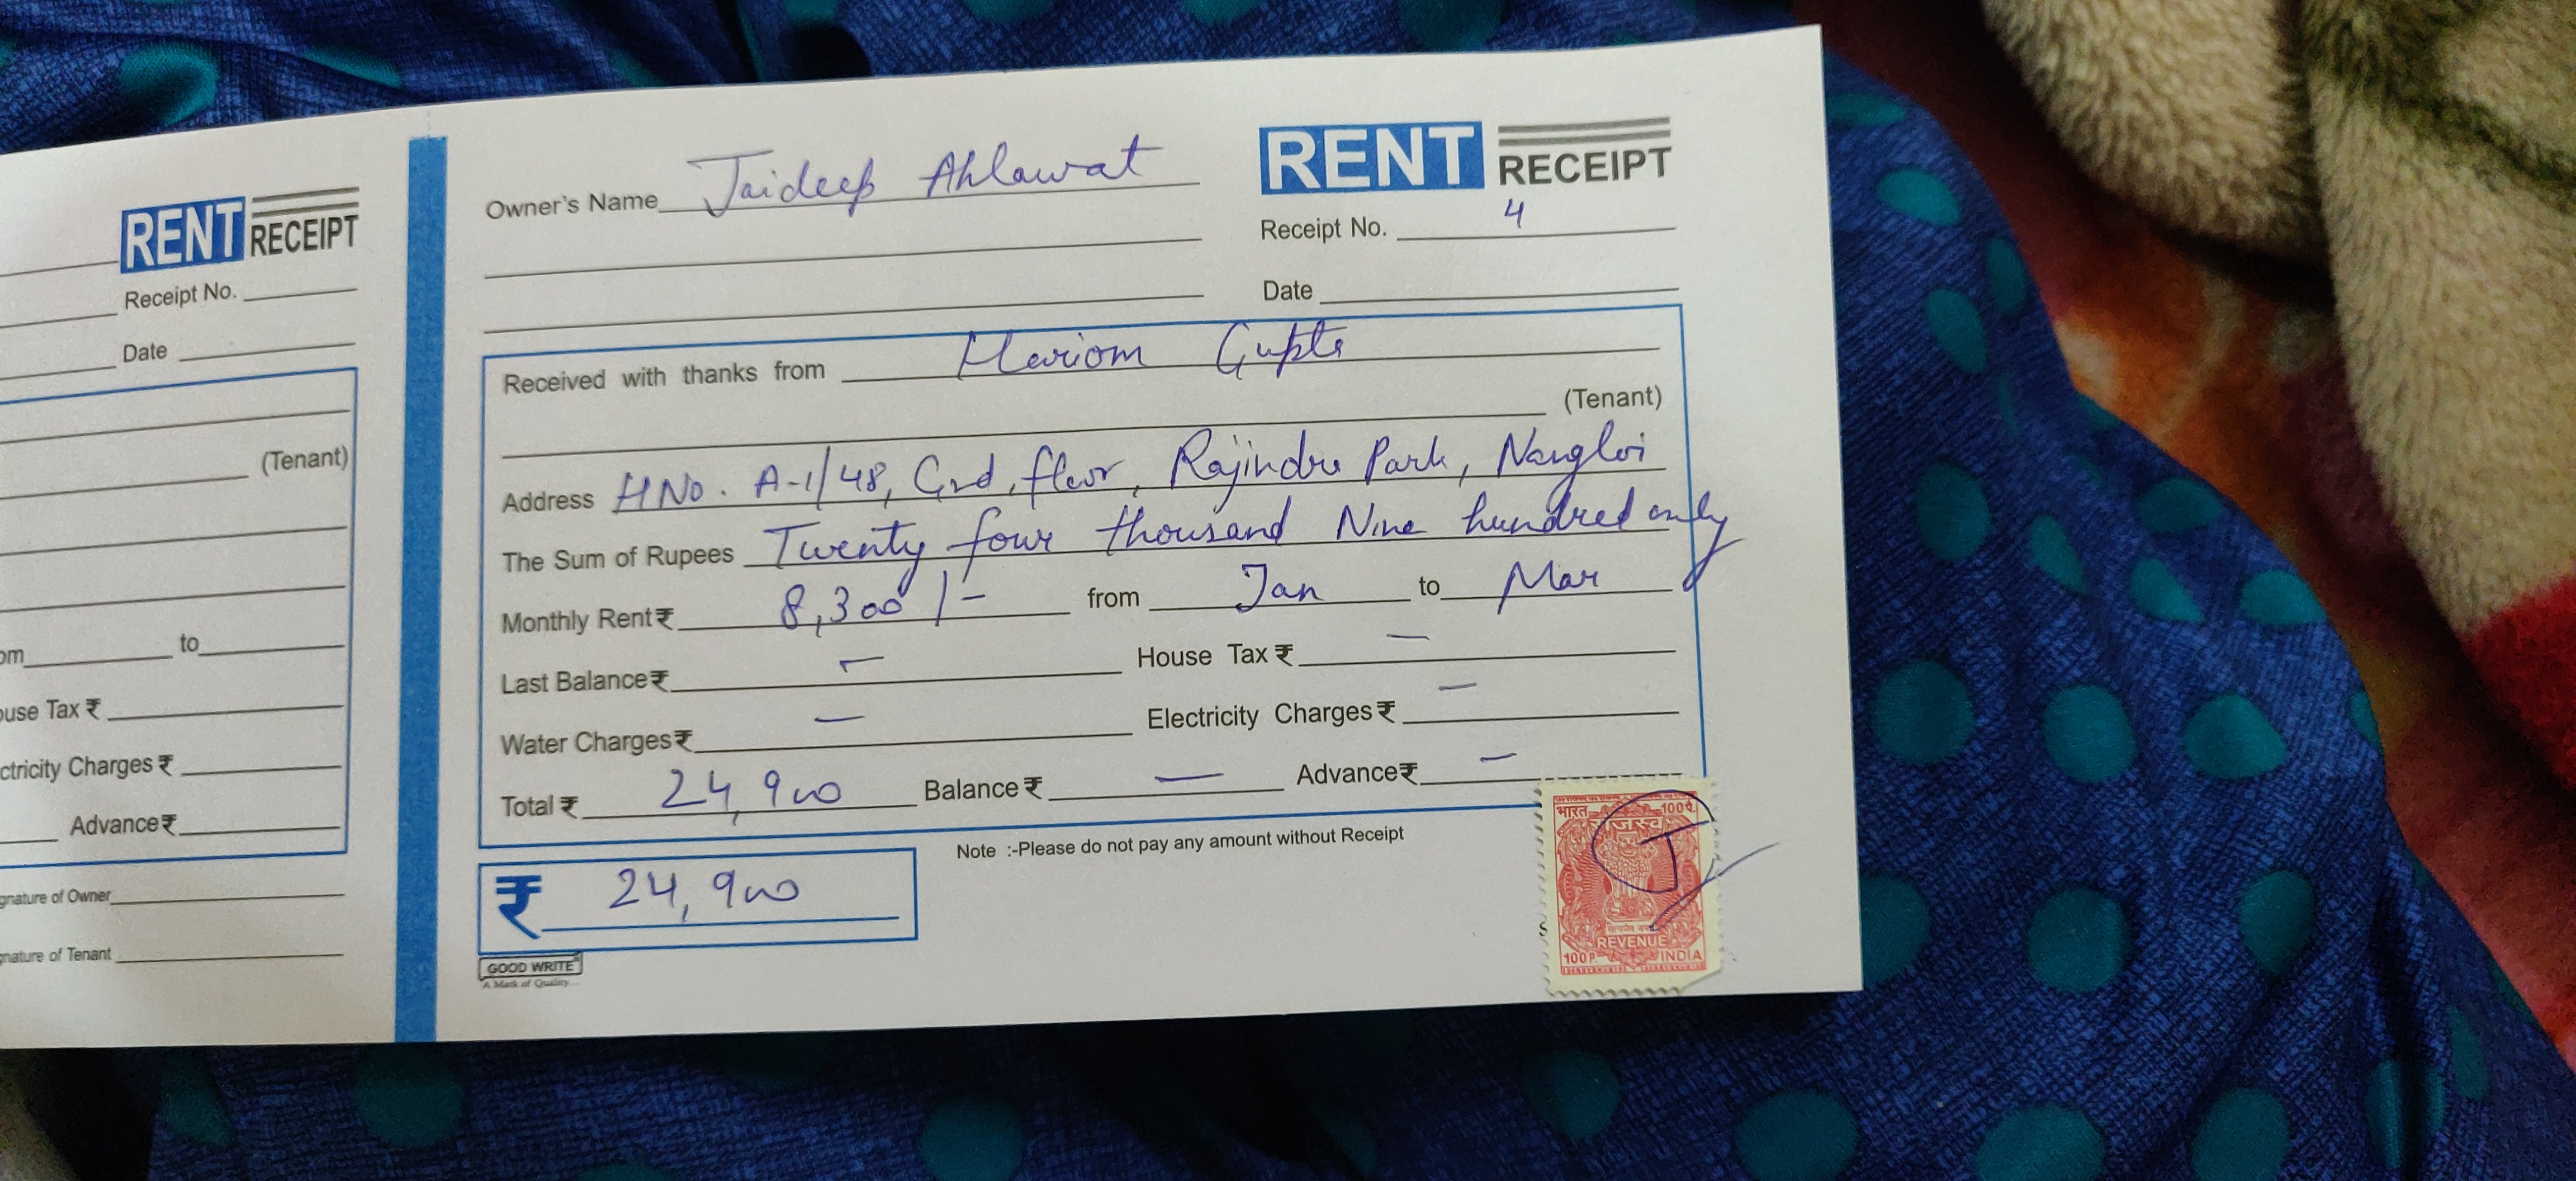 RENT RECEIPT
Receipt No.
Date
(Tenant)
to
Advance ₹
RENT RECEIPT
Owner's Name Jaideep Ahlawat
Receipt No. 4
Date
Received with thanks from Hariom Gupta
(Tenant)
Address HNo. A-1/48, Grd, floor, Rajindra Park, Nangloi
The Sum of Rupees Twenty four thousand Nine hundred only
Monthly Rent ₹ 8,300/- from Jan to Mar
Last Balance ₹ - House Tax ₹ -
Water Charges ₹ - Electricity Charges ₹ -
Total ₹ 24,900 Balance ₹ - Advance ₹ -
₹ 24,900
Note :-Please do not pay any amount without Receipt
GOOD WRITE
A Mark of Quality...
भारत
100
100 P
REVENUE
INDIA